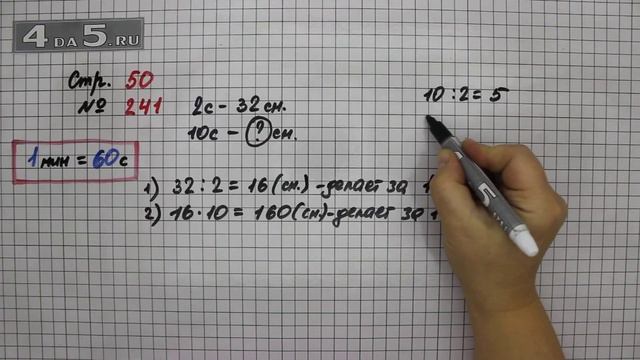 4DA5.RU
Стр. 50
№ 241
2с – 32 сн.
10с – ? сн.
1 мин = 60 с
10 : 2 = 5
1) 32 : 2 = 16 (сн.) – делает за 1
2) 16 · 10 = 160 (сн.) – делает за 1